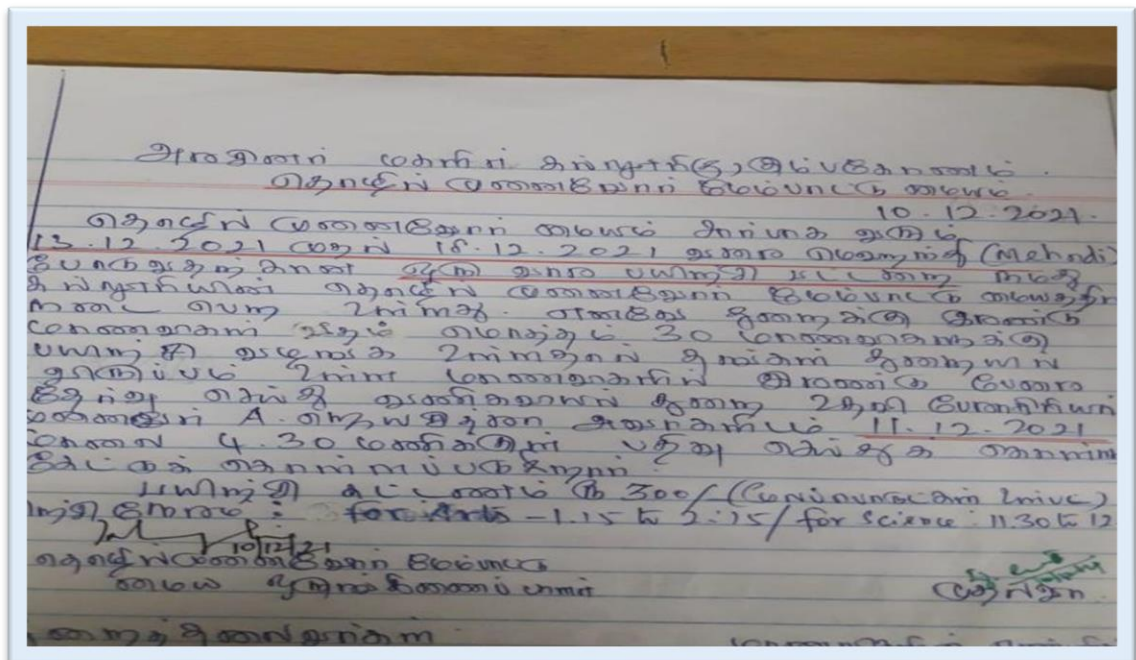 அரசினர் மகளிர் கல்லூரி கும்பகோணம்.
தொழில் முனைவோர் மேம்பாட்டு மையம்.
10.12.2021.
தொழில் முனைவோர் மையம் சார்பாக வரும்
13.12.2021 முதல் 18.12.2021 வரை மெஹந்தி (Mehndi)
போடுவதற்கான ஒரு வார பயிற்சி பட்டறை நமது
கல்லூரியின் தொழில் முனைவோர் மேம்பாட்டு மையத்தில்
நடை பெற உள்ளது. எனவே துறைக்கு இரண்டு
மாணவர்கள் வீதம் மொத்தம் 30 மாணவர்களுக்கு
பயிற்சி வழங்க உள்ளதால் தங்கள் துறையில்
விருப்பம் உள்ள மாணவர்களில் இரண்டு பேரை
தேர்வு செய்து வணிகவியல் துறை உதவி பேராசிரியர்
A. அவர்களிடம் 11.12.2021
மாலை 4.30 மணிக்குள் பதிவு செய்துக் கொள்ள
கேட்டுக் கொள்ளப்படுகிறார்.
பயிற்சி கட்டணம் ரூ 300/- (மூலப்பொருட்கள் உட்பட)
நேரம் : for Arts - 1.15 to 2.15 / for Science : 11.30 to 12
10/12/21
தொழில்முனைவோர் மேம்பாட்டு
மைய ஒருங்கிணைப்பாளர்
முதல்வர்
துறைத்தலைவர்கள்